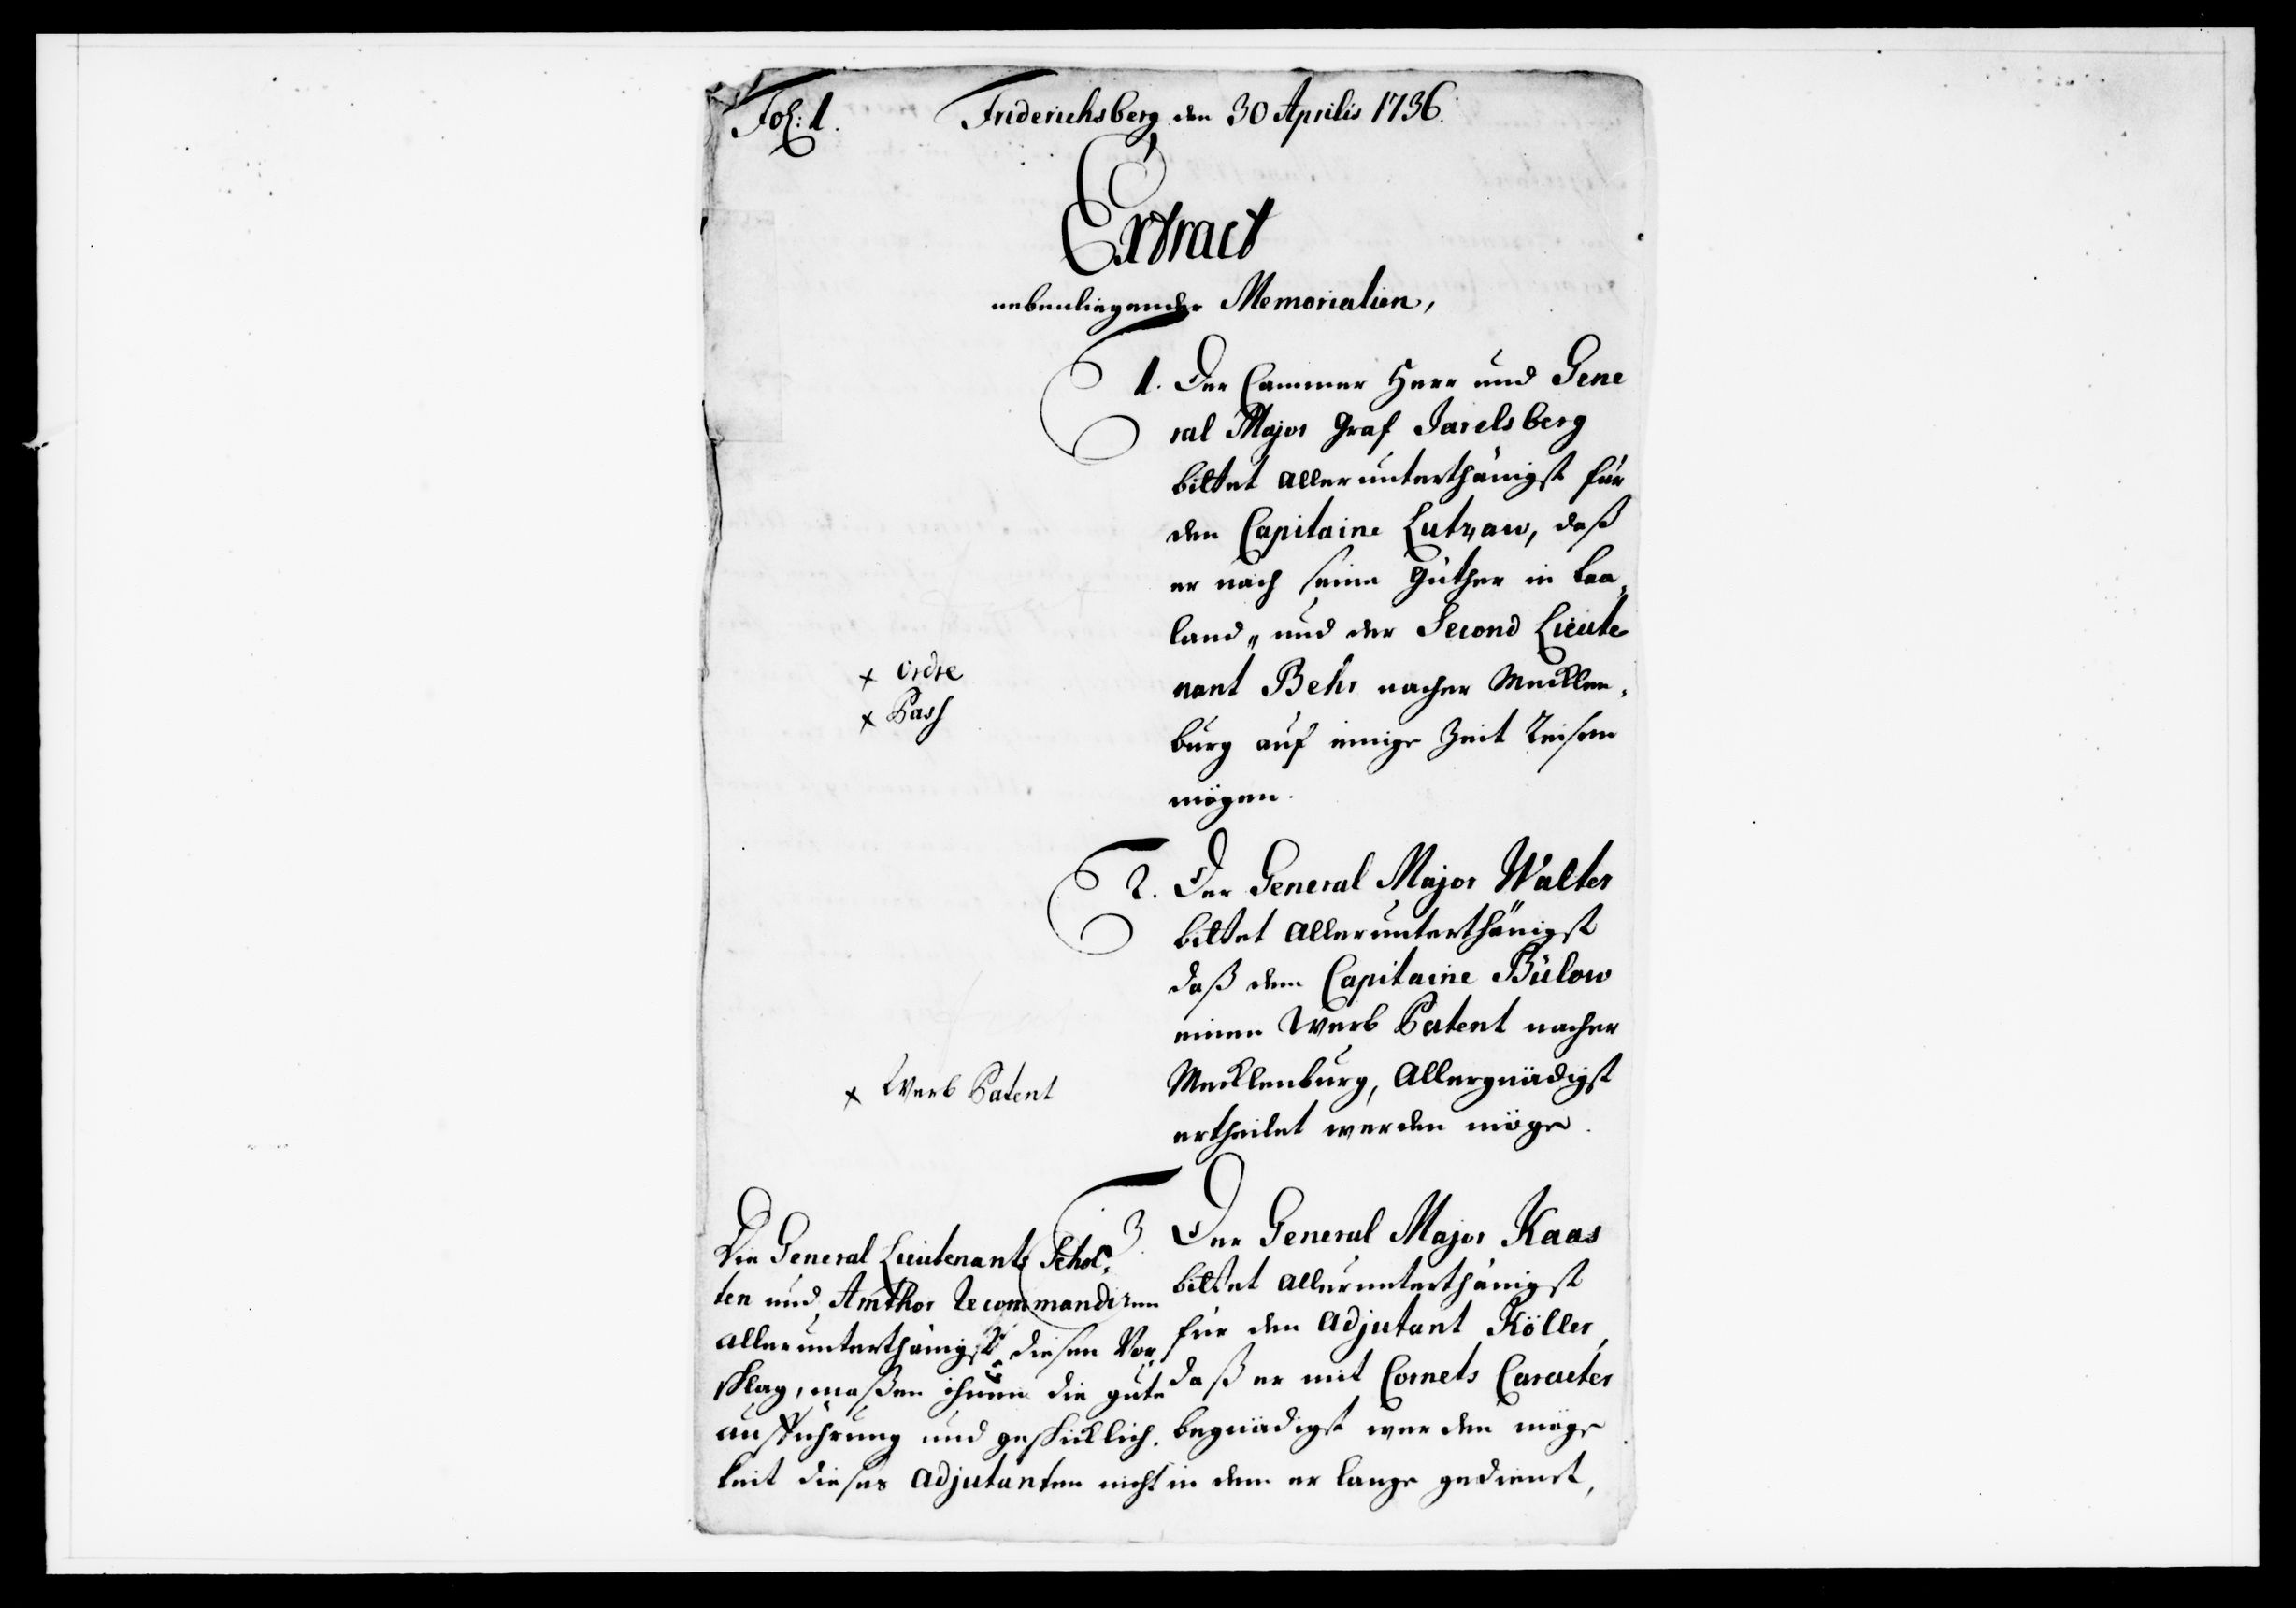 Fol: 1.
Friderichsberg den 30 Aprilis 1736.
Extract
nebenliegender Memorialien,
1. Der Cammer Herr und Gene
ral Major Graf Jarelsberg
bittet allerunterthänigst für
den Capitaine Lutzaw, daß
er nach seine Güther in Laa-
land, und der Second Lieute
nant Behr nacher Mecklen-
burg auf einige Zeit Reisen
mögen.
x ordre
x Pass
2. Der General Major Walter
bittet allerunterthänigst
daß dem Capitaine Bülow
einen Werb Patent nacher
Mecklenburg, Allergnädigst
ertheilet werden möge.
x Werb Patent
3. Der General Major Kaas
bittet allerunterthänigst
für den Adjutant Köller,
daß er mit Cornets Caracter
begnädigst werden möge
in dem er lange gedienet,
Die General Lieutenants Schol-
ten und Amthor Recommandiren
allerunterthänigst diesen Vor-
schlag, maßen ihnen die gute
aufführung und geschicklich-
keit dieses Adjutanten nicht